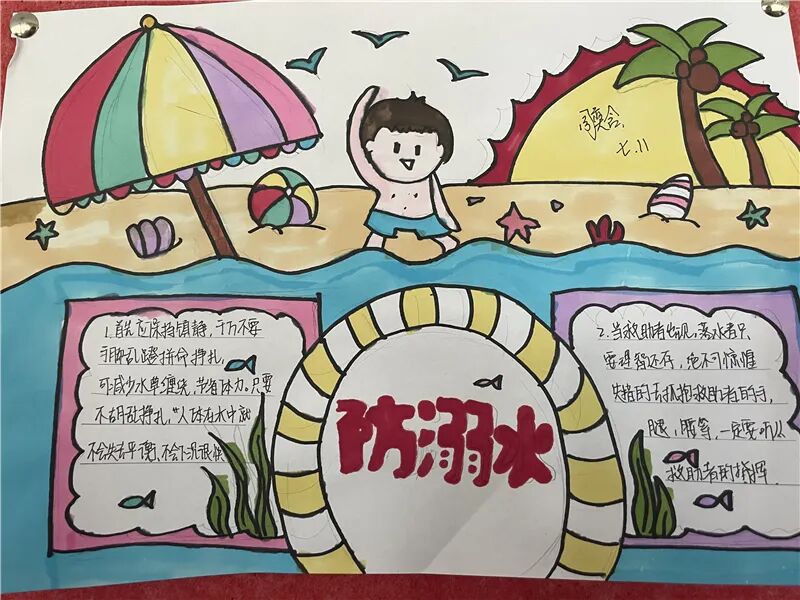 七.11
1.首先应保持镇静,千万不要
手脚乱蹬拼命挣扎,
可减少水草缠绕,节省体力。只要
不胡乱挣扎,"人体在水中就
不会失去平衡,不会下沉很快
防溺水
2.当救助者出现,落水者只
要理智还存,绝不可惊惶
失措的去抓抱救助者的手,
腿,腰等,一定要听从
救助者的指挥.